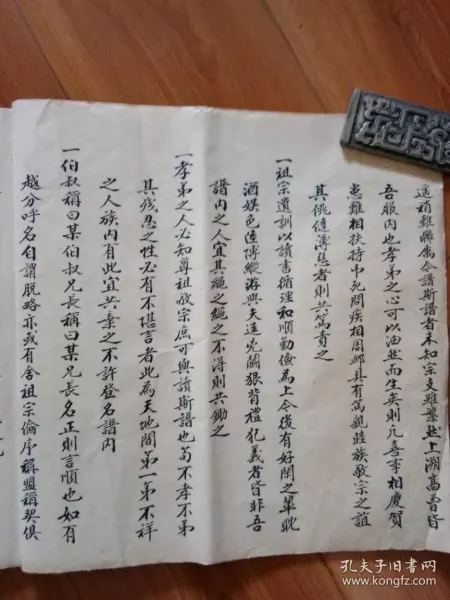 遥稍難聯属今讀斯譜者未知宗支雖繁然上溯高曾皆
吾服内也孝弟之心可以油然而生矣則凡喜事相慶賀
患難相扶持弔死問疾相周邺具有篤親睦族敬宗之誼
其佻僆薄惡者則共篤責之
一祖宗遺訓以讀書循理和順勤儉為上今後有好閑之輩耽
酒娱色逹博縱游與夫逞兇鬪狠背禮犯義者皆非吾
譜内之人宜共繩之繩之不得則共鋤之
一孝弟之人必知尊祖敬宗庶可與讀斯譜也苟不孝不弟
其残忍之性必有不堪言者此為天地間第一第不祥
之人族内有此宜共棄之不許登名譜内
一伯叔稱曰某伯叔兄長稱曰某兄長名正則言順也如有
越分呼名自謂脱略亦或有舍祖宗倫序稱盟稱契俱
孔夫子旧书网
www.kongfz.com